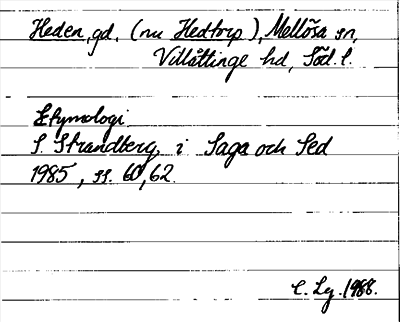 Heden, gd. (nu Hedtorp), Mellösa sn,
Villåttinge hd, Söd. l.
Etymologi
S. Strandberg i Saga och Sed
1985, ss. 60, 62.
C. Lg. 1988.